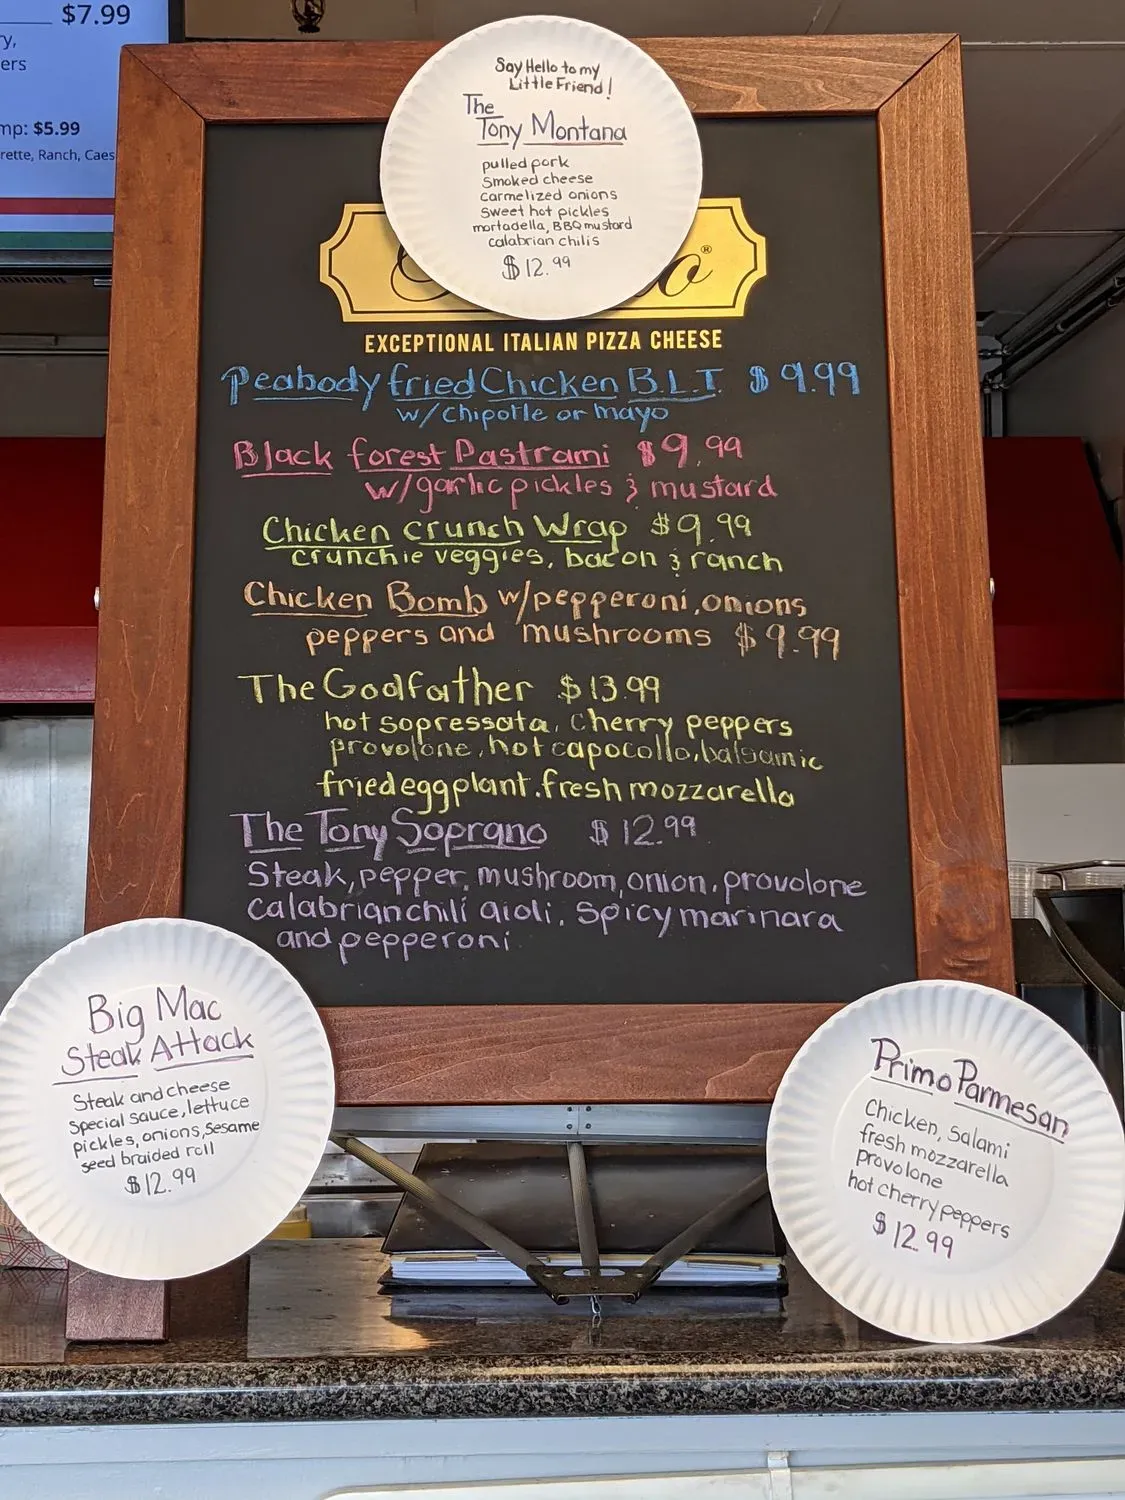 $7.99
ers
mp: $5.99
rette, Ranch, Caes
Say Hello to my
Little Friend!
The
Tony Montana
pulled pork
Smoked cheese
carmelized onions
Sweet hot pickles
mortadella, BBQ mustard
calabrian chilis
$12.99
®
EXCEPTIONAL ITALIAN PIZZA CHEESE
Peabody fried Chicken B.L.T. $9.99
w/chipotle or mayo
Black forest Pastrami $9.99
w/garlic pickles & mustard
Chicken crunch Wrap $9.99
crunchie veggies, bacon & ranch
Chicken Bomb w/pepperoni, onions
peppers and mushrooms $9.99
The Godfather $13.99
hot sopressata, cherry peppers
provolone, hot capocollo, balsamic
fried eggplant. fresh mozzarella
The Tony Soprano $12.99
Steak, pepper, mushroom, onion, provolone
calabrian chili aioli, spicy marinara
and pepperoni
Big Mac
Steak Attack
Steak and cheese
Special sauce, lettuce
pickles, onions, sesame
seed braided roll
$12.99
Primo Parmesan
Chicken, salami
fresh mozzarella
provolone
hot cherry peppers
$12.99